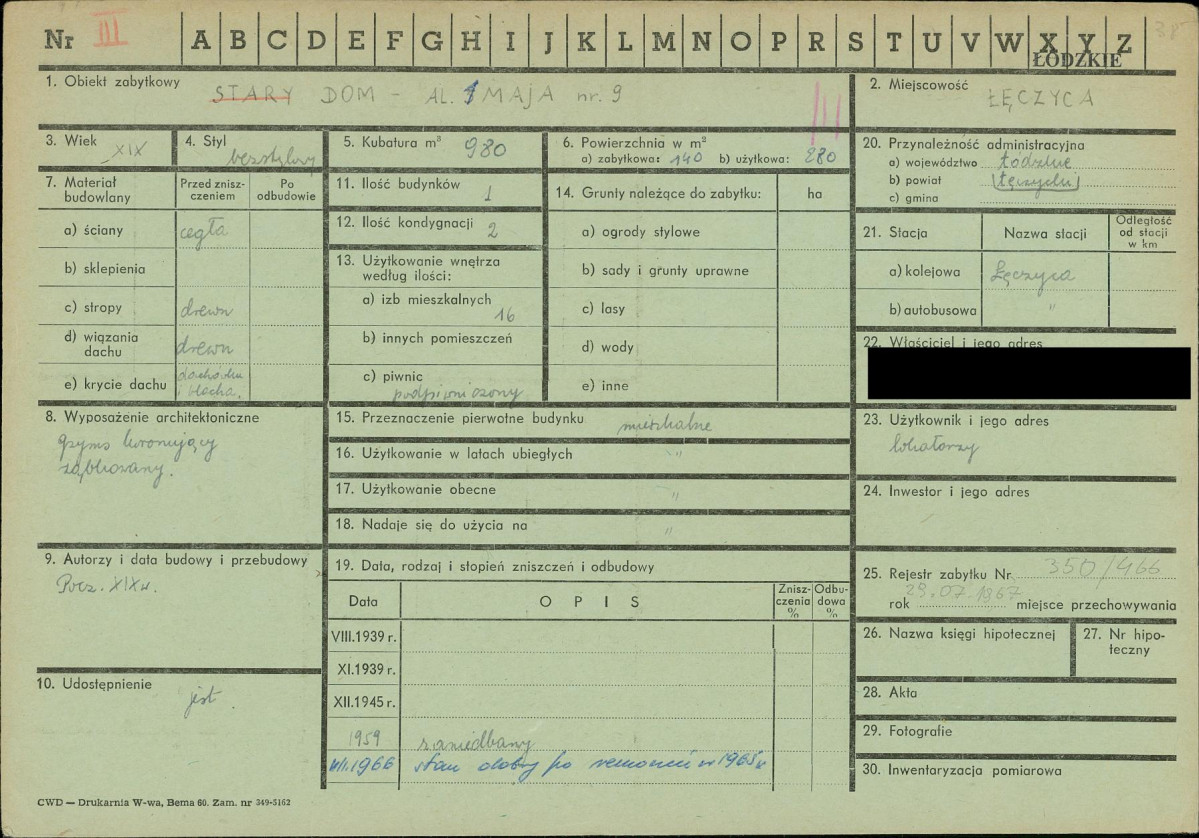 Nr III A B C D E F G H I J K L M N O P R S T U V W X Y Z
ŁÓDZKIE
1. Obiekt zabytkowy
STARY DOM - AL. 1 MAJA nr. 9
2. Miejscowość
ŁĘCZYCA
3. Wiek XIX
4. Styl bezstylowy
5. Kubatura m³ 980
6. Powierzchnia w m²
a) zabytkowa: 140 b) użytkowa: 280
7. Materiał budowlany
Przed zniszczeniem
Po odbudowie
a) ściany cegła
b) sklepienia
c) stropy drewn
d) wiązania dachu drewn
e) krycie dachu dachówka i blacha.
8. Wyposażenie architektoniczne
gzyms koronujący
ząbkowany.
9. Autorzy i data budowy i przebudowy
Pocz. XIX w.
10. Udostępnienie
jest.
11. Ilość budynków 1
12. Ilość kondygnacji 2
13. Użytkowanie wnętrza
według ilości:
a) izb mieszkalnych
16
b) innych pomieszczeń
c) piwnic
podpiwniczony
14. Grunty należące do zabytku: ha
a) ogrody stylowe
b) sady i grunty uprawne
c) lasy
d) wody
e) inne
15. Przeznaczenie pierwotne budynku mieszkalne
16. Użytkowanie w latach ubiegłych "
17. Użytkowanie obecne "
18. Nadaje się do użycia na "
19. Data, rodzaj i stopień zniszczeń i odbudowy
Data OPIS Zniszczenia % Odbudowa %
VIII.1939 r.
XI.1939 r.
XII.1945 r.
1959 zaniedbany
VII.1966 stan dobry po remoncie w 1965 r.
20. Przynależność administracyjna
a) województwo Łódzkie
b) powiat (Łęczycki)
c) gmina
21. Stacja Nazwa stacji Odległość od stacji w km
a) kolejowa Łęczyca
b) autobusowa "
22. Właściciel i jego adres
23. Użytkownik i jego adres
lokatorzy
24. Inwestor i jego adres
25. Rejestr zabytku Nr 350/466
rok 29.07.1967 miejsce przechowywania
26. Nazwa księgi hipotecznej
27. Nr hipoteczny
28. Akta
29. Fotografie
30. Inwentaryzacja pomiarowa
CWD — Drukarnia W-wa, Bema 60. Zam. nr 349-5162